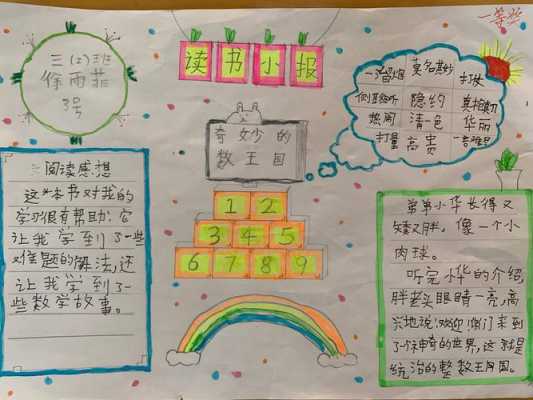 一等奖
读书小报
三(2)班
徐雨菲
3号
奇妙的
数王国
1 2
3 4 5
6 7 8 9
一溜烟 莫名其妙
隐约
热闹 清一色 华丽
打量 高贵
阅读感想
这本书对我的
学习很有帮助:它
让我学到了一些
难题的解法,还
让我学到了一
些数学故事。
弟弟小华长得又
矮又胖,像一个小
肉球。
听完小华的介绍,
胖老头眼睛一亮,高
兴地说:欢迎你们来到
了神奇的世界,这就是
统治的整数王国。